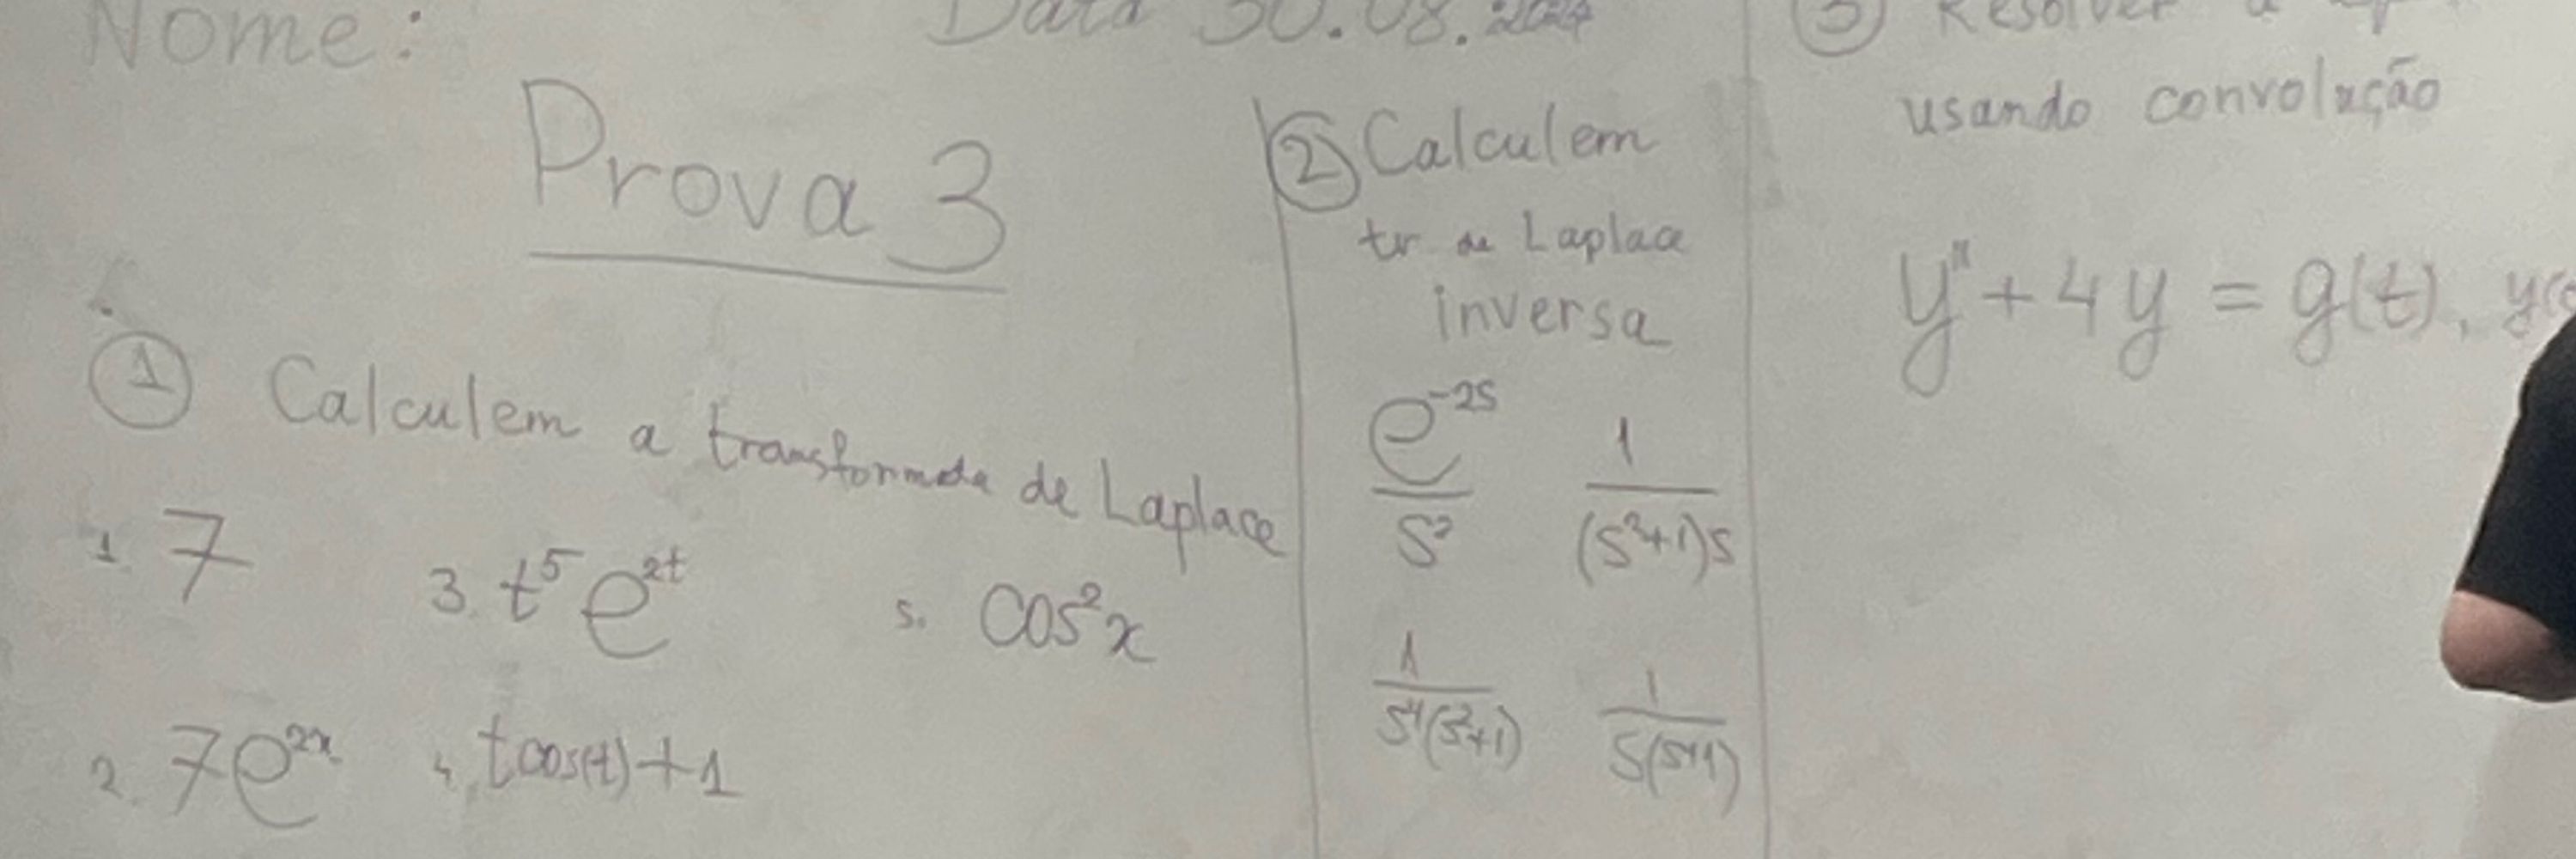 Nome:
Data 30.08.2024
Prova 3
① Calculem a transformada de Laplace
1. 7
3. t⁵e²ᵗ
5. cos²x
2. 7e²ˣ
4. tcos(t)+1
② Calculem
tr de Laplace
inversa
e⁻²ˢ/s²
1/((s²+1)s)
1/(s⁴(s²+1))
1/(s(s+1))
③ Resolver a
usando convolução
y''+4y = g(t), y(